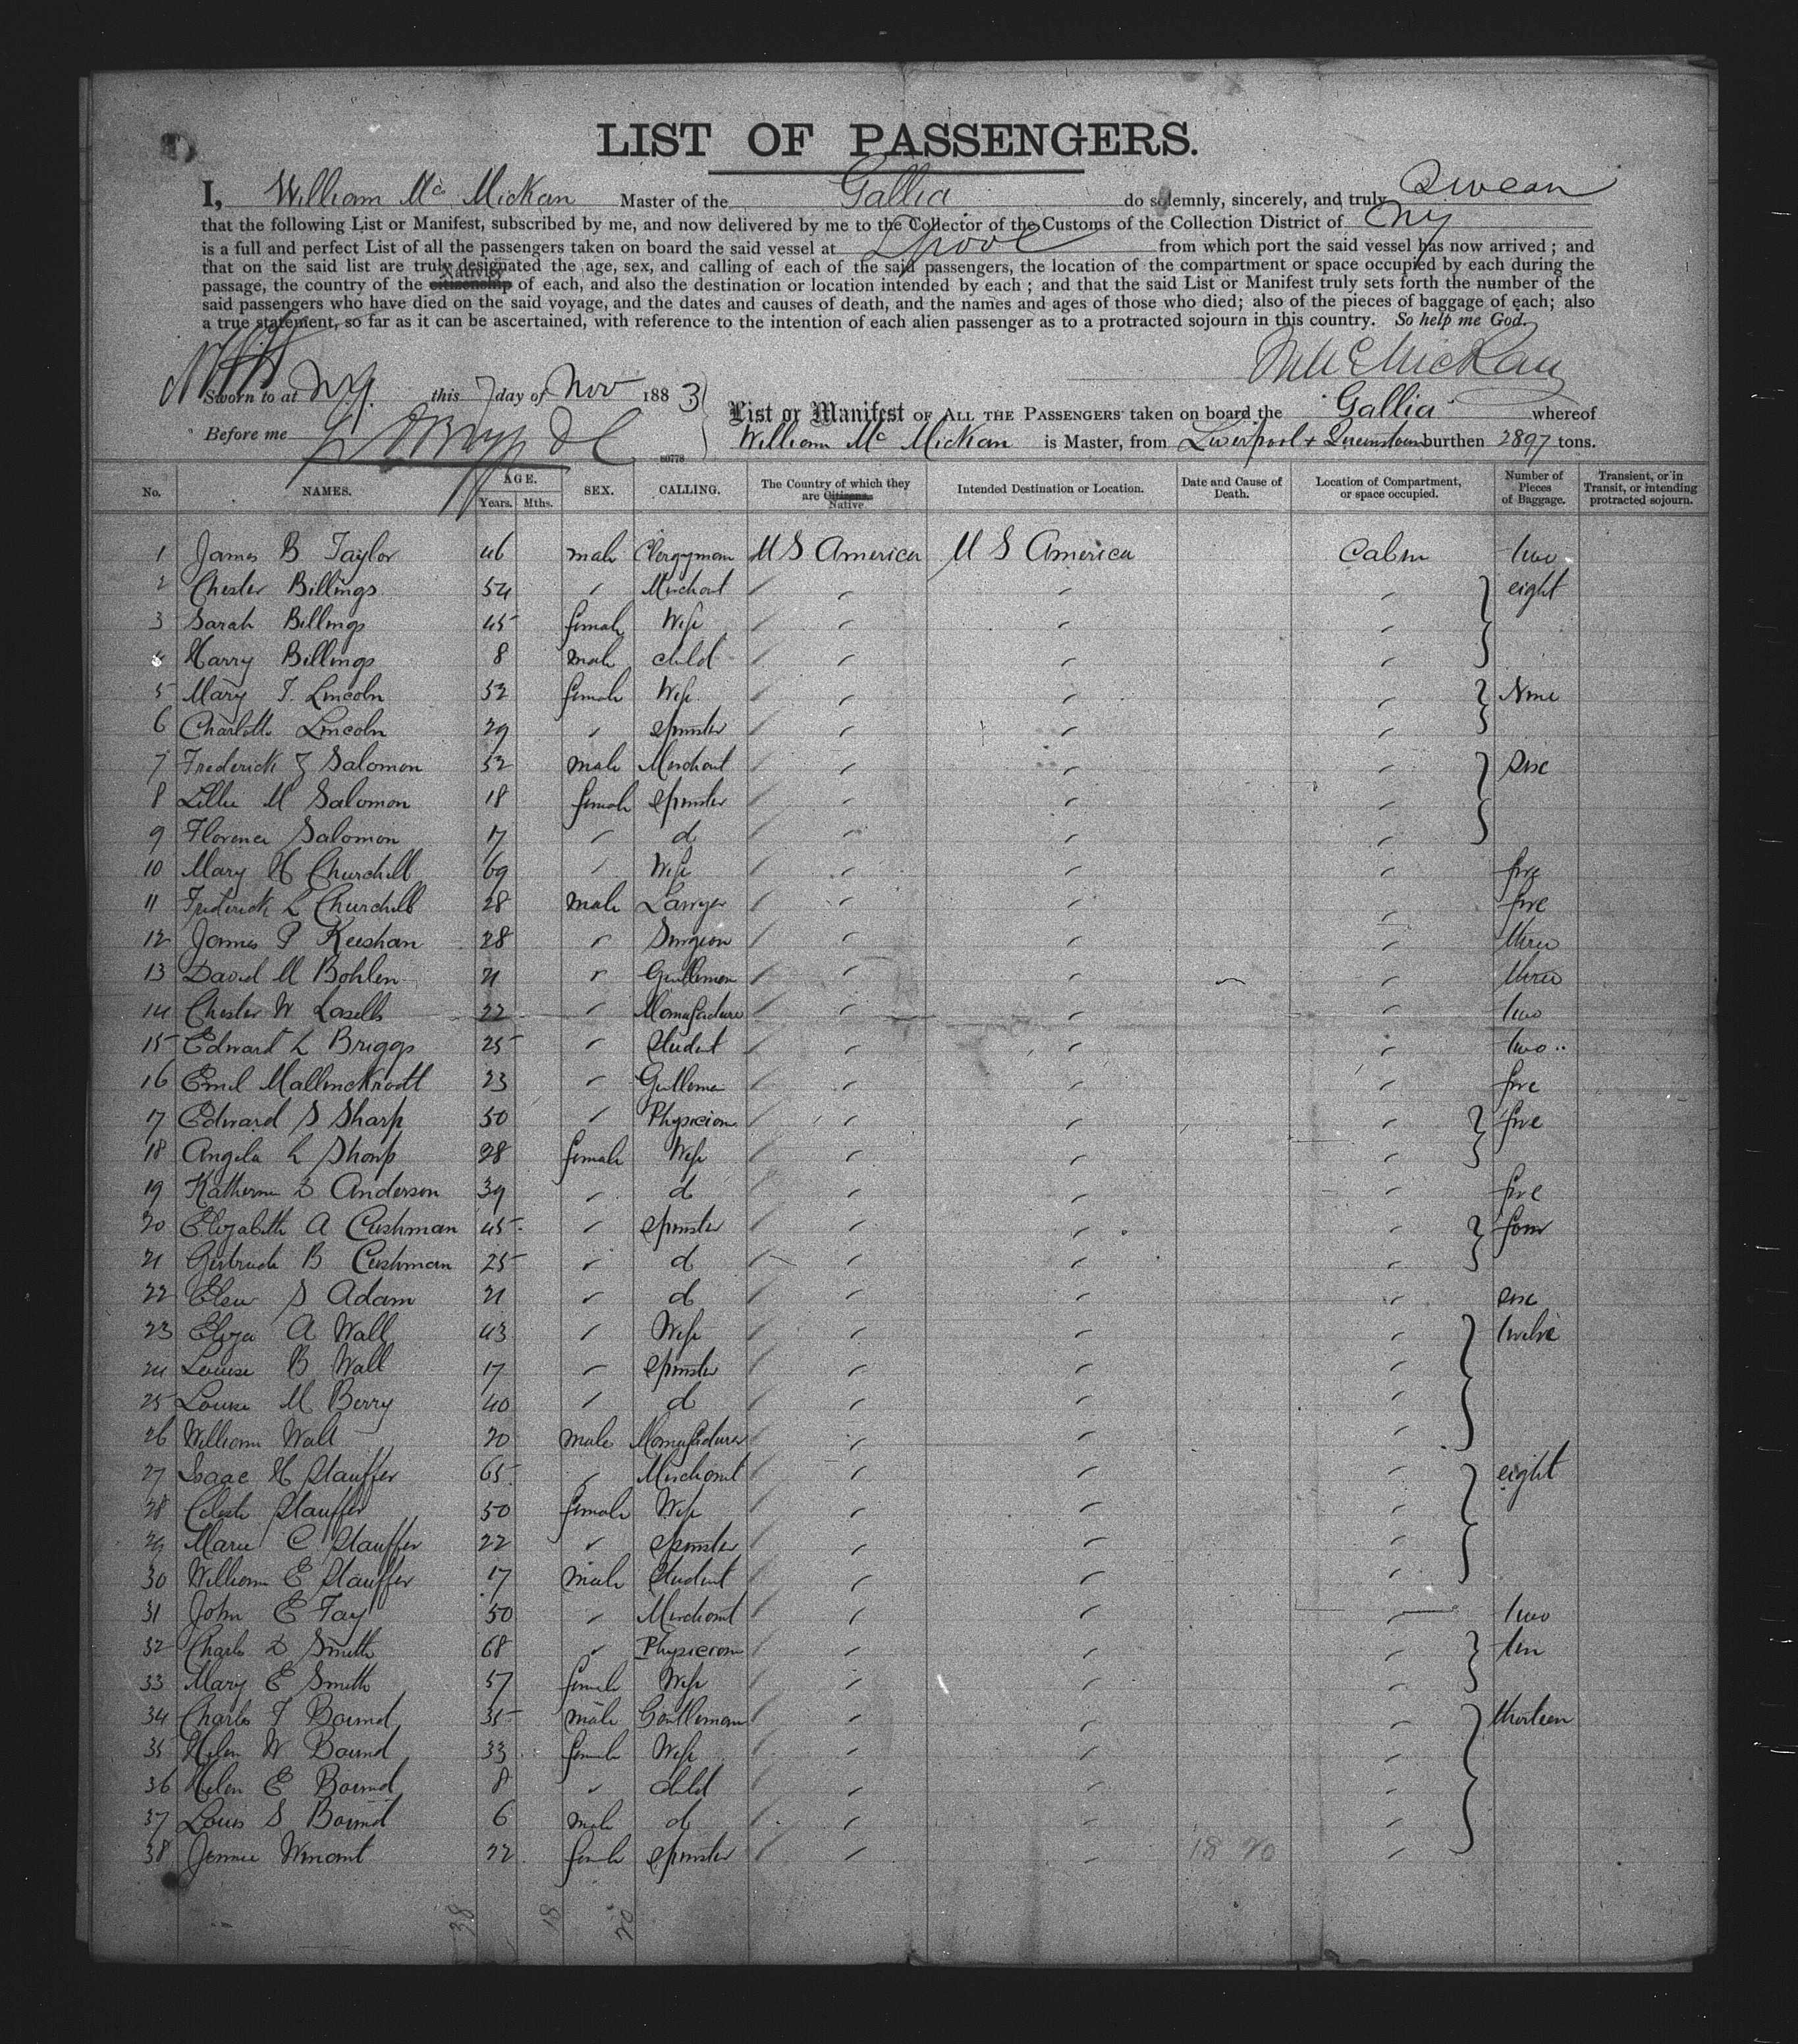 LIST OF PASSENGERS.
I, William Mc Mickan Master of the Gallia do solemnly, sincerely, and truly Swear
that the following List or Manifest, subscribed by me, and now delivered by me to the Collector of the Customs of the Collection District of Ny
is a full and perfect List of all the passengers taken on board the said vessel at Lpool from which port the said vessel has now arrived; and
that on the said list are truly designated the age, sex, and calling of each of the said passengers, the location of the compartment or space occupied by each during the
Nativity
passage, the country of the citizenship of each, and also the destination or location intended by each; and that the said List or Manifest truly sets forth the number of the
said passengers who have died on the said voyage, and the dates and causes of death, and the names and ages of those who died; also of the pieces of baggage of each; also
a true statement, so far as it can be ascertained, with reference to the intention of each alien passenger as to a protracted sojourn in this country. So help me God.
Wm McMickan
Sworn to at N.Y. this 7 day of Nov 1883
List or Manifest OF ALL THE PASSENGERS taken on board the Gallia whereof
Before me
William Mc Mickan is Master, from Liverpool + Queenstown burthen 2897 tons.
80778
No. NAMES. AGE. Years. Mths. SEX. CALLING. The Country of which they are Citizens. Native. Intended Destination or Location. Date and Cause of Death. Location of Compartment, or space occupied. Number of Pieces of Baggage. Transient, or in Transit, or intending protracted sojourn.
1 James B Taylor 46 male Clergyman U S America U S America Cabin two
2 Chester Billings 54 " Merchant " " " eight
3 Sarah Billings 45 female Wife " " "
4 Harry Billings 8 male child " " "
5 Mary T. Lincoln 52 female Wife " " " Nine
6 Charlotte Lincoln 29 " spinster " " "
7 Frederick Z Salomon 52 male Merchant " " " six
8 Lillie M Salomon 18 female spinster " " "
9 Florence Salomon 17 " d " " "
10 Mary H Churchill 69 " Wife " " " five
11 Frederick L Churchill 28 male Lawyer " " " five
12 James P Keeshan 28 " Surgeon " " " three
13 David M Bohlen 21 " Gentleman " " " three
14 Chester W Lasell 22 " Manufacturer " " " two
15 Edward L Briggs 25 " Student " " " two
16 Emil Mallinckrodt 23 " Gentleman " " " five
17 Edward S Sharp 50 " Physician " " " five
18 Angela L Sharp 28 female Wife " " "
19 Katherine D Anderson 39 " d " " " five
20 Elizabeth A Cushman 45 " spinster " " " four
21 Gertrude B Cushman 25 " d " " "
22 S Adam 21 " d " " " six
23 Eliza A Wall 43 " Wife " " " twelve
24 Louise B Wall 17 " spinster " " "
25 Louise M Berry 40 " d " " "
26 William Wall 20 male Manufacturer " " "
27 Isaac H Stauffer 65 " Merchant " " " eight
28 Celeste Stauffer 50 female Wife " " "
29 Marie C Stauffer 22 " spinster " " "
30 William E Stauffer 17 male Student " " "
31 John E Fay 50 " Merchant " " " two
32 Charles D Smith 68 " Physician " " " ten
33 Mary E Smith 57 female Wife " " "
34 Charles F Bound 35 male Gentleman " " " thirteen
35 Helen W Bound 33 female Wife " " "
36 Helen E Bound 8 " child " " "
37 Louis S Bound 6 male d " " "
38 Jennie Winant 22 female spinster " " "
18 20
38 18 20